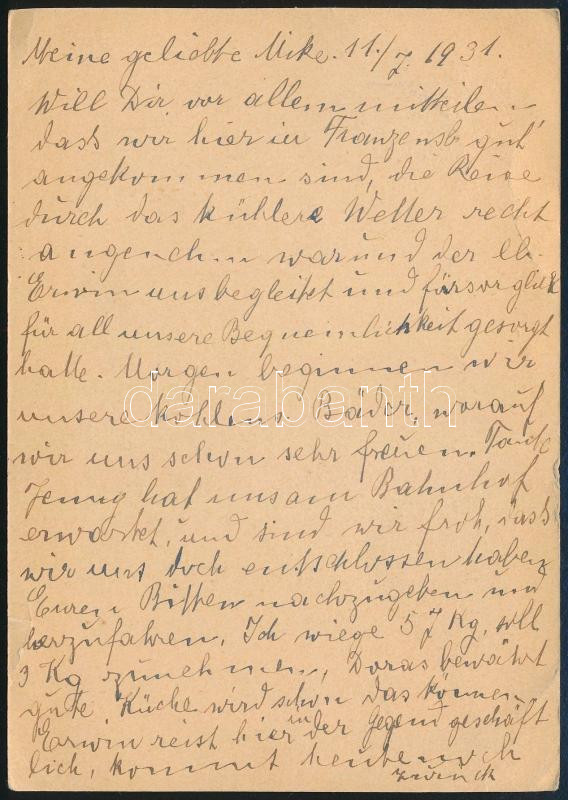 Meine geliebte Mike. 11./7. 1931.
Will Dir vor allem mitteilen
dass wir hier in Franzensb. gut
angekommen sind, die Reise
durch das kühlere Wetter recht
angenehm war und der lb.
Erwin uns begleitet und fürsorglich
für all unsere Bequemlichkeit gesorgt
hatte. Morgen beginnen wir
unsere Kohlens. Bäder, worauf
darabanth.com
wir uns schon sehr freuen. Tante
Jenny hat uns am Bahnhof
erwartet, und sind wir froh, dass
wir uns doch entschlossen haben
Euren Bitten nachzugeben und
herzufahren. Ich wiege 57 Kg, soll
3 Kg zunehmen, Doras bewährt
gute Küche wird schon das können
Erwin reist hier in der Gegend geschäft
lich, kommt heute noch
zurück